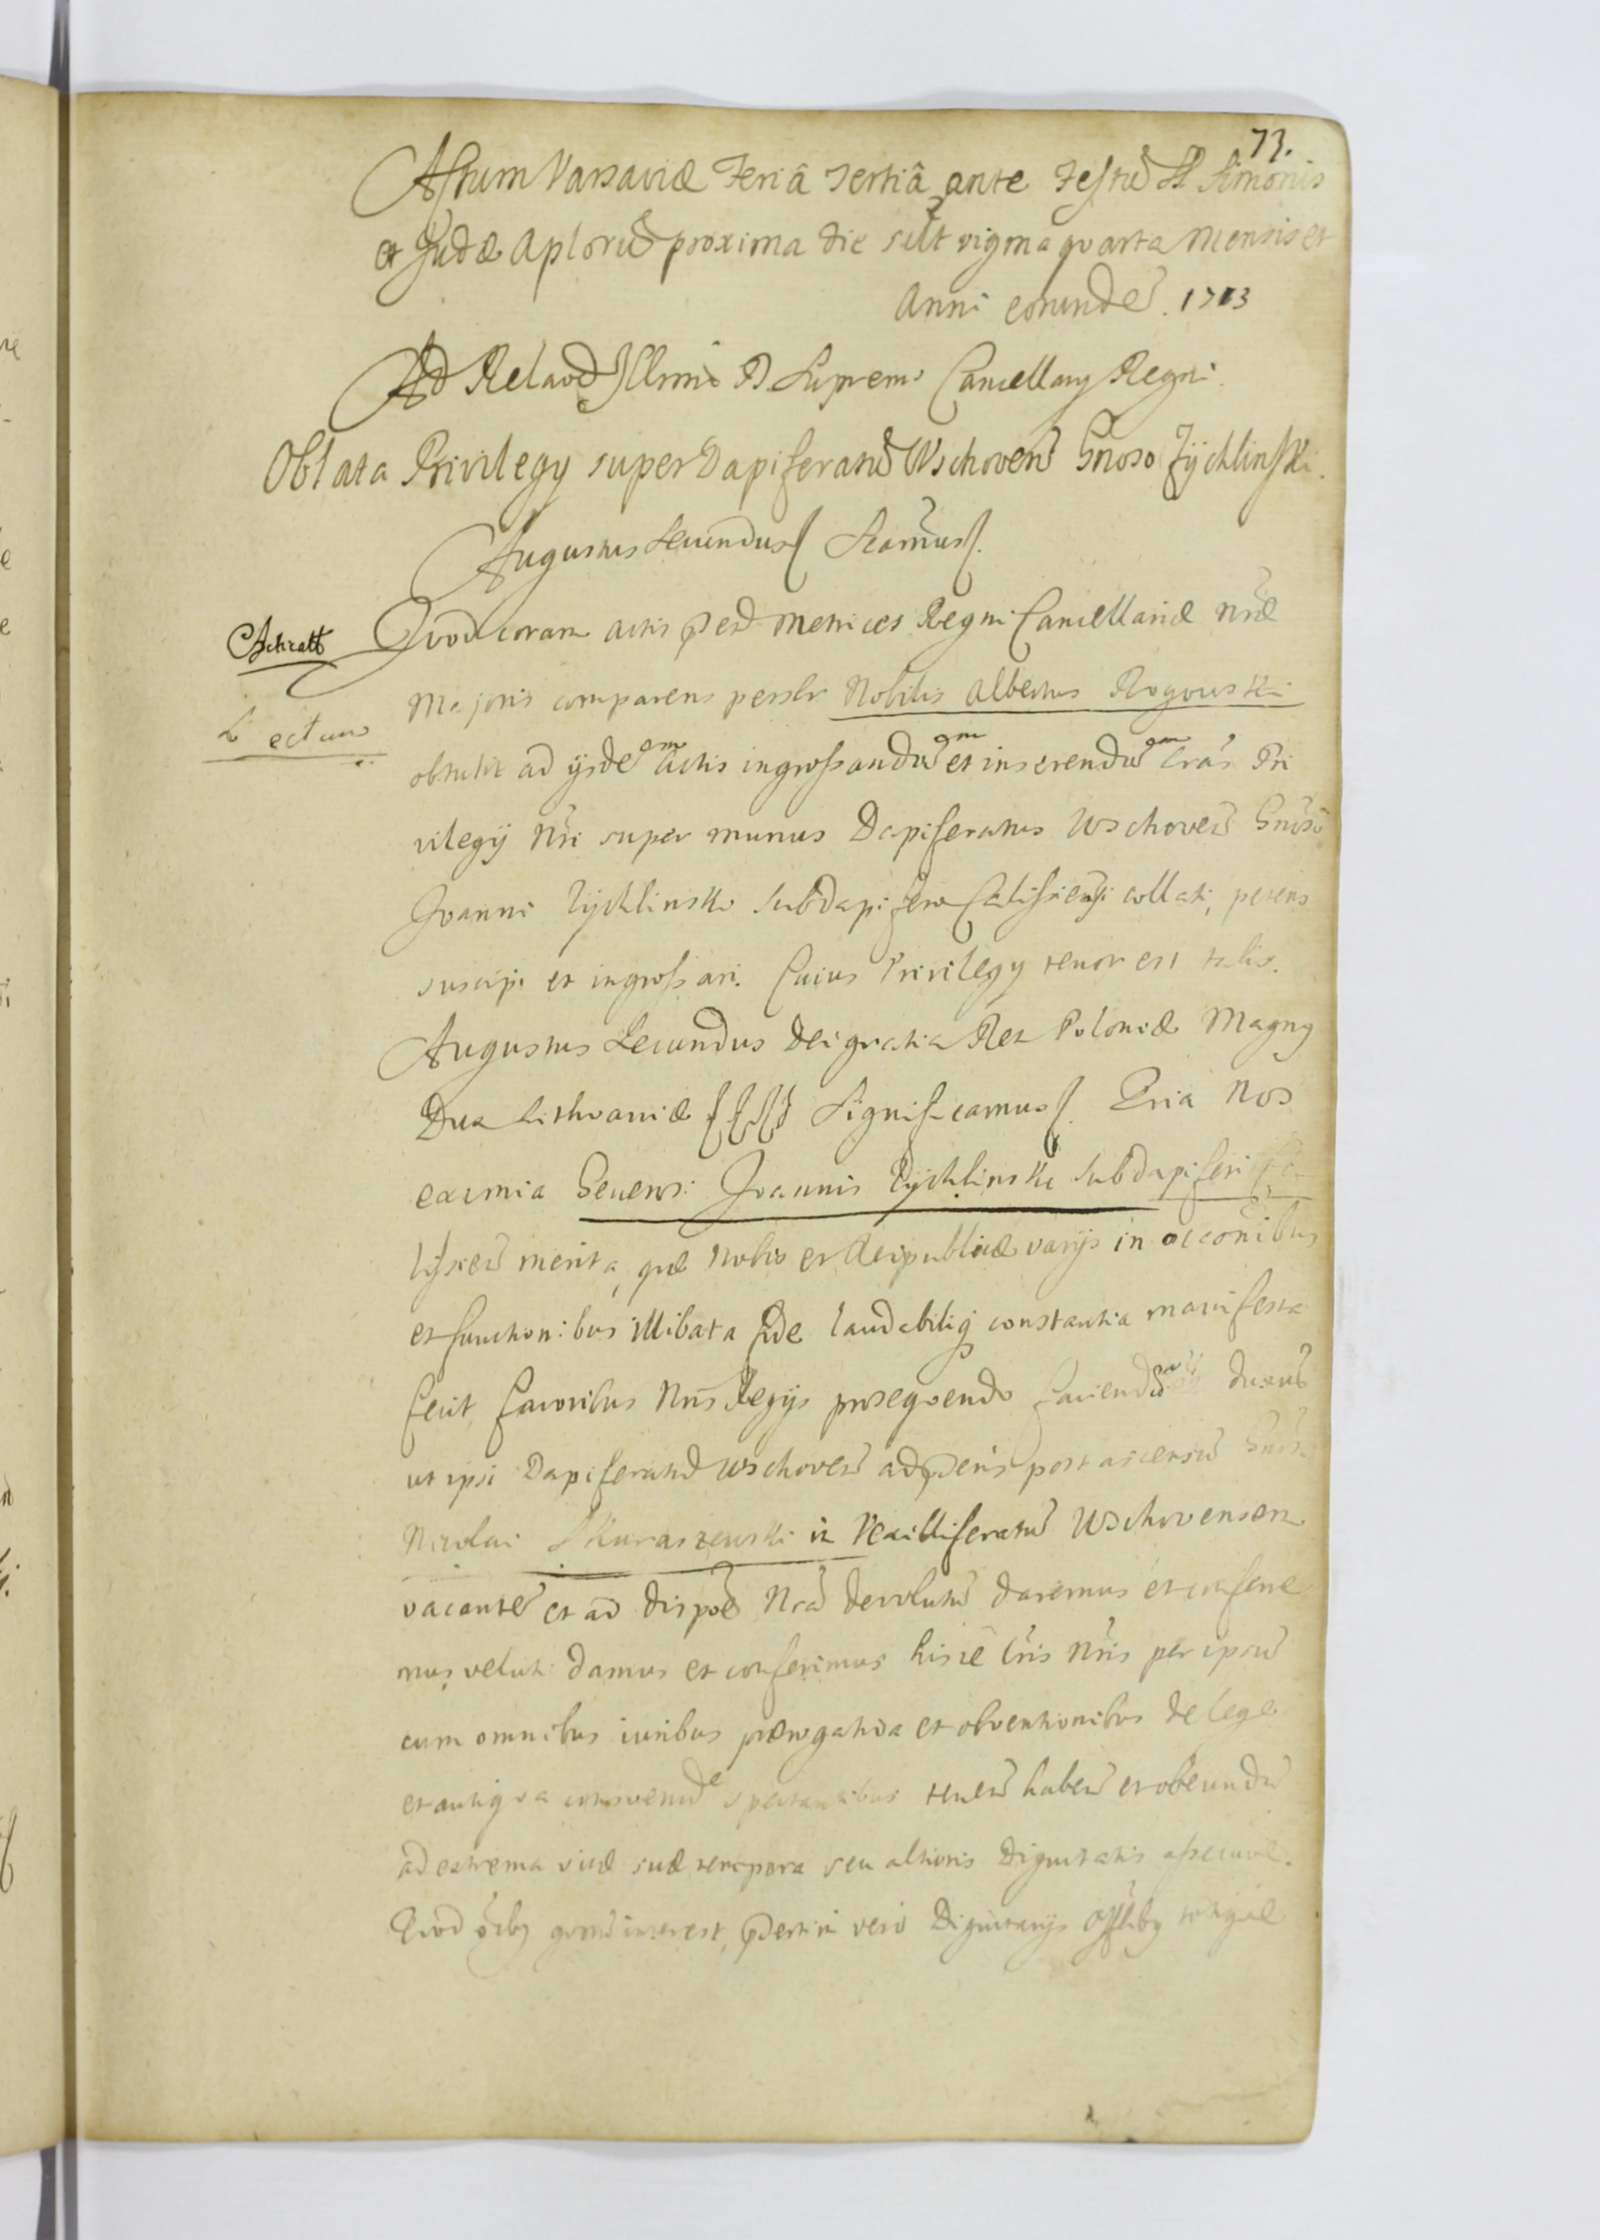 73.
Actum Varsaviæ Feriâ Tertiâ ante Festũ SS Simonis
et Judæ Aplorũ proxima die scilt vigma quarta Mensis et
Anni eorundẽ. 1713
Ad Relaoẽ Illmi D Supremi Cancellarÿ Regni.
Oblata Privilegÿ super Dapiferatũ Wschoveñ Gnoso Zÿchlinski.
Augustus Secundus Scamus
Quod coram actis p̃ esd Metrices Regni Cancellariæ nræ
Majoris comparens persolr Nobilis Albertus Rogowski
Lectum
obtulit ad ijsdẽ Actis ingrossandũ et inserendũ Lrãs Pri
vilegÿ Nri super munus Dapiferatus Wschoveñ Gnoso
Joanni Zÿchlinski Subdapifero Calissiensi collati, petens
suscipi et ingrossari. Cuius Privilegÿ tenor est talis.
Augustus Secundus Dei gratia Rex Poloniæ Magnÿ
Dux Lithvaniæ Significamus. Qria Nos
eximia Generosi Joannis Zÿchlinski Subdapiferi Ca
lissieñ merita, quæ Nobis et Reipublicæ varÿs in occõnibus
et functionibus illibata fide laudabiliq constantia manifesta
fecit, favoribus Nris Regÿs prosequendo faciendũ duxũs
ut ipsi Dapiferatũ Wschoveñ ad p̃sens post ascensũ Gnosi
Nicolai Skuraszewski in Vexilliferatũ Wschovensem
vacantẽ et ad dispoẽ Nrã devolutũ daremus et conferre
mus, veluti damus et conferimus hisce Lris Nris per ipsũ
cum omnibus iuribus prærogativa et obventionibus de lege
et antiqva consvetudẽ spectantibus teneñ habeñ et obeundũ
ad extrema vitæ suæ tempora seu altioris dignitatis assecuoẽ.
Quod oibq quorũ interest, p̃sertim vero Dignitarÿs Offlibq